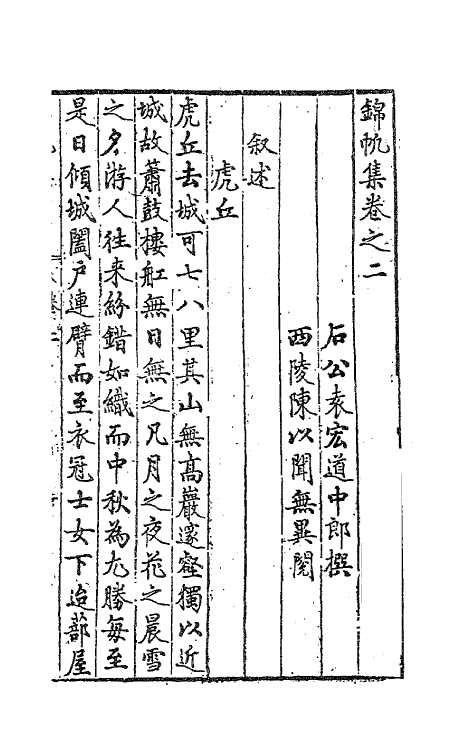 錦帆集卷之二
石公袁宏道中郎撰
西陵陳以聞無異閱
叙述
虎丘
虎丘去城可七八里其山無高巖邃壑獨以近
城故蕭鼓樓舡無日無之凡月之夜花之晨雪
之夕游人往来紛錯如織而中秋為尤勝每至
是日傾城闔戶連臂而至衣冠士女下迨蔀屋